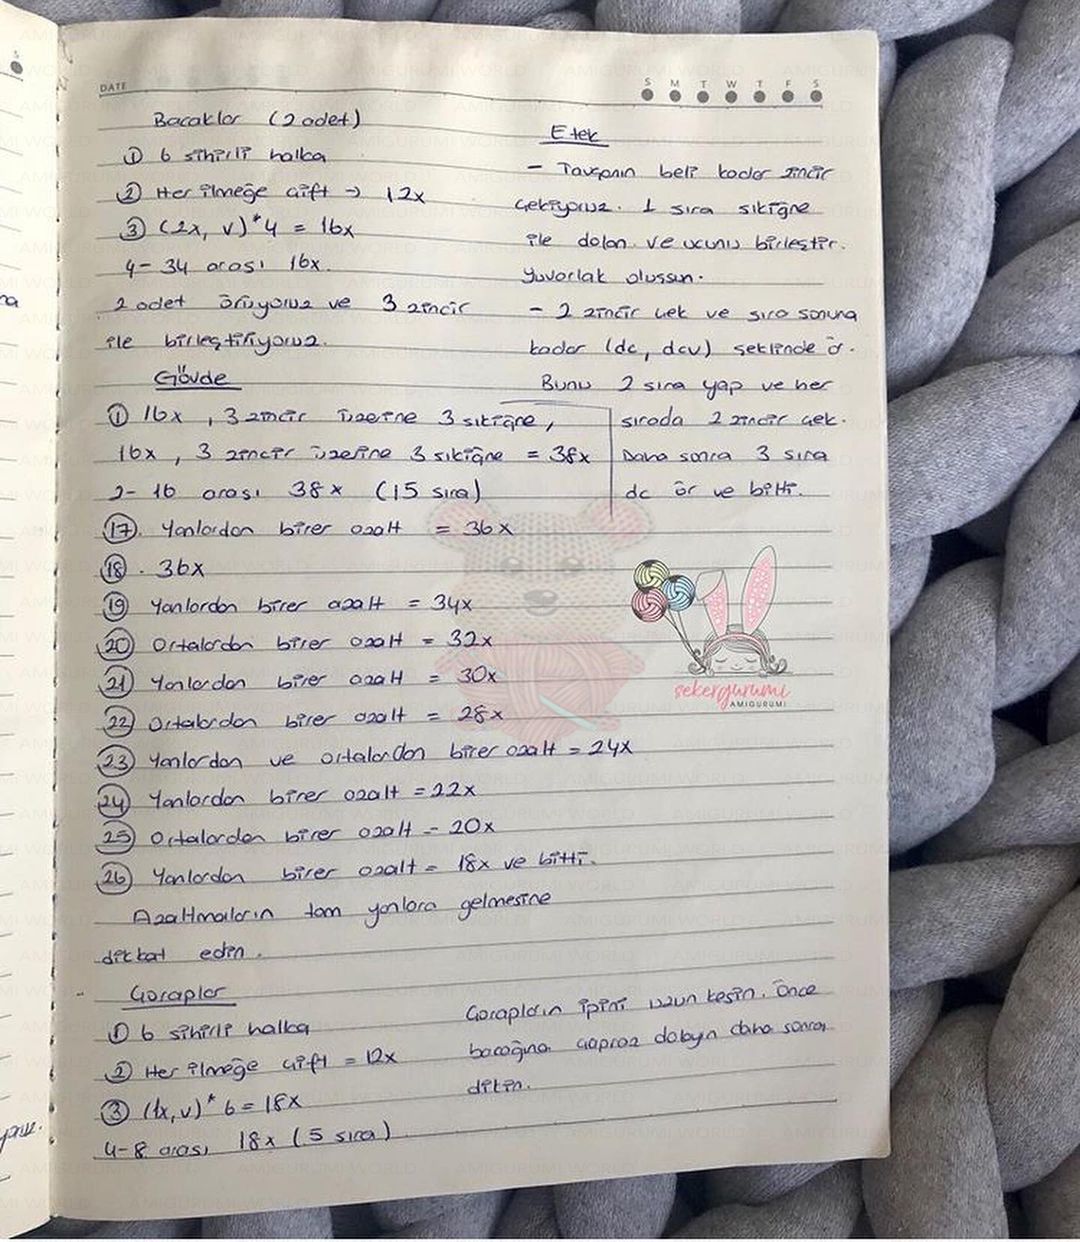 DATE
S M T W T F S
Bacaklar (2 adet)
① 6 sihirli halka
② Her ilmeğe çift → 12x
③ (2x, v)*4 = 16x
4-34 arası 16x.
2 adet örüyoruz ve 3 zincir
ile birleştiriyoruz.
Etek
- Tavşanın beli kadar zincir
çekiyoruz. 1 sıra sıkiğne
ile dolan ve ucunu birleştir.
Yuvarlak oluşsun.
- 2 zincir çek ve sıra sonuna
kadar (dc, dcv) şeklinde ör.
Bunu 2 sıra yap ve her
sırada 2 zincir çek.
Daha sonra 3 sıra
dc ör ve bitti.
Gövde
① 16x, 3 zincir üzerine 3 sıkiğne,
16x, 3 zincir üzerine 3 sıkiğne = 38x
2-16 arası 38x (15 sıra)
⑰. Yanlardan birer azalt = 36x
⑱. 36x
⑲ Yanlardan birer azalt = 34x
⑳ Ortalardan birer azalt = 32x
㉑ Yanlardan birer azalt = 30x
㉒ Ortalardan birer azalt = 28x
㉓ Yanlardan ve ortalardan birer azalt = 24x
㉔ Yanlardan birer azalt = 22x
㉕ Ortalardan birer azalt = 20x
㉖ Yanlardan birer azalt = 18x ve bitti.
Azaltmaların tam yanlara gelmesine
dikkat edin.
sekergurumi
AMIGURUMI
Çoraplar
① 6 sihirli halka
② Her ilmeğe çift = 12x
③ (1x, v)* 6 = 18x
4-8 arası 18x (5 sıra)
Çorapların ipini uzun kesin. Önce
bacağına çapraz dolayın daha sonra
dikin.
AMIGURUMI WORLD